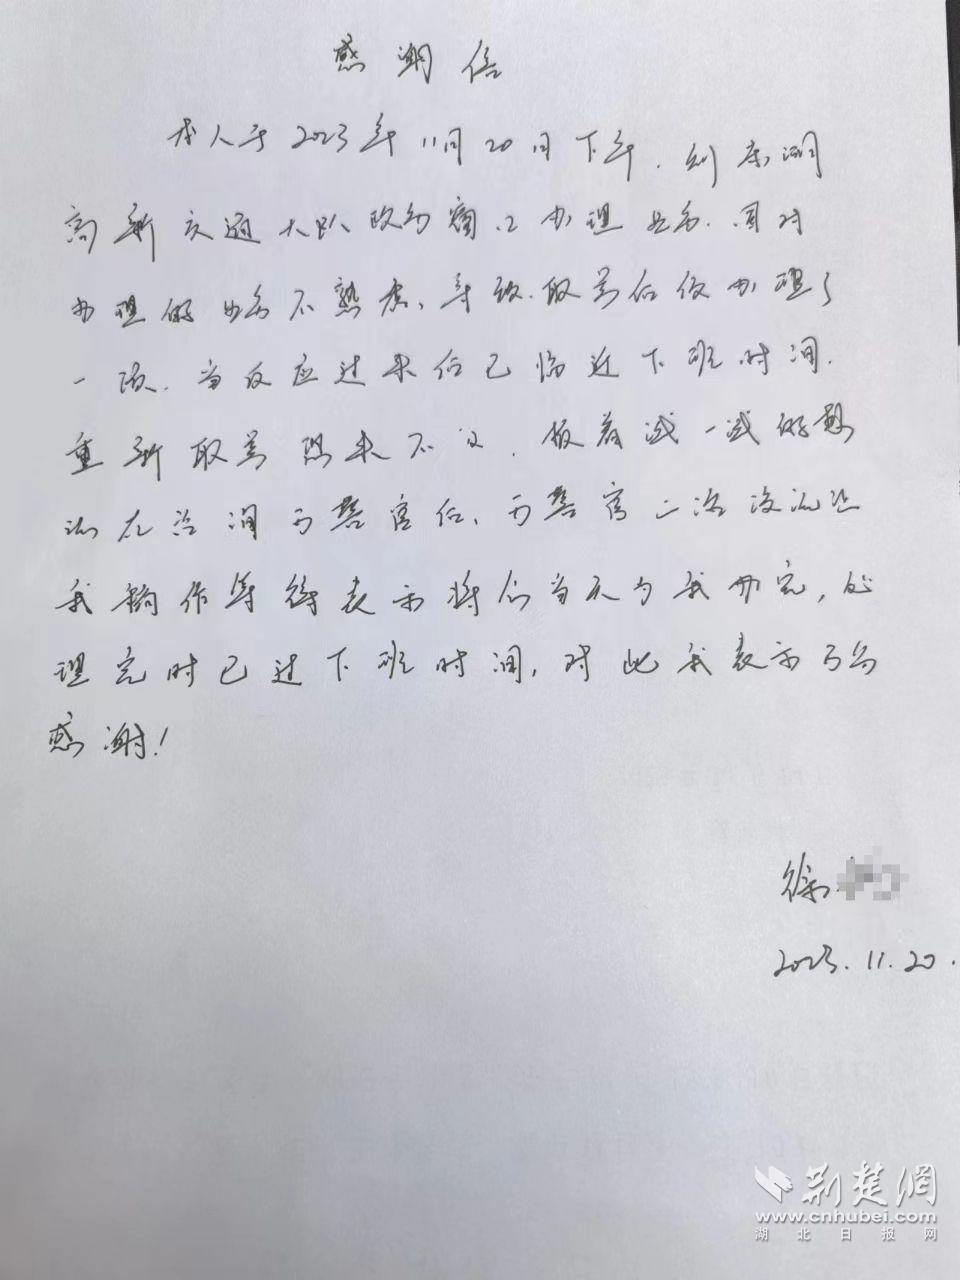 感谢信
本人于2023年11月20日下午.到东湖
高新交通大队政务窗口办理业务.因对
办理的业务不熟悉、导致.取号后仅办理了
一项.当反应过来后已临近下班时间.
重新取号恐来不及.报着试一试的想
法在咨询万警官后、万警官二次次让
我稍作等待表示将会当天为我办完,处
理完时已过下班时间,对此我表示万分
感谢!
徐
2023.11.20.
荆楚网
www.cnhubei.com
湖北日报网